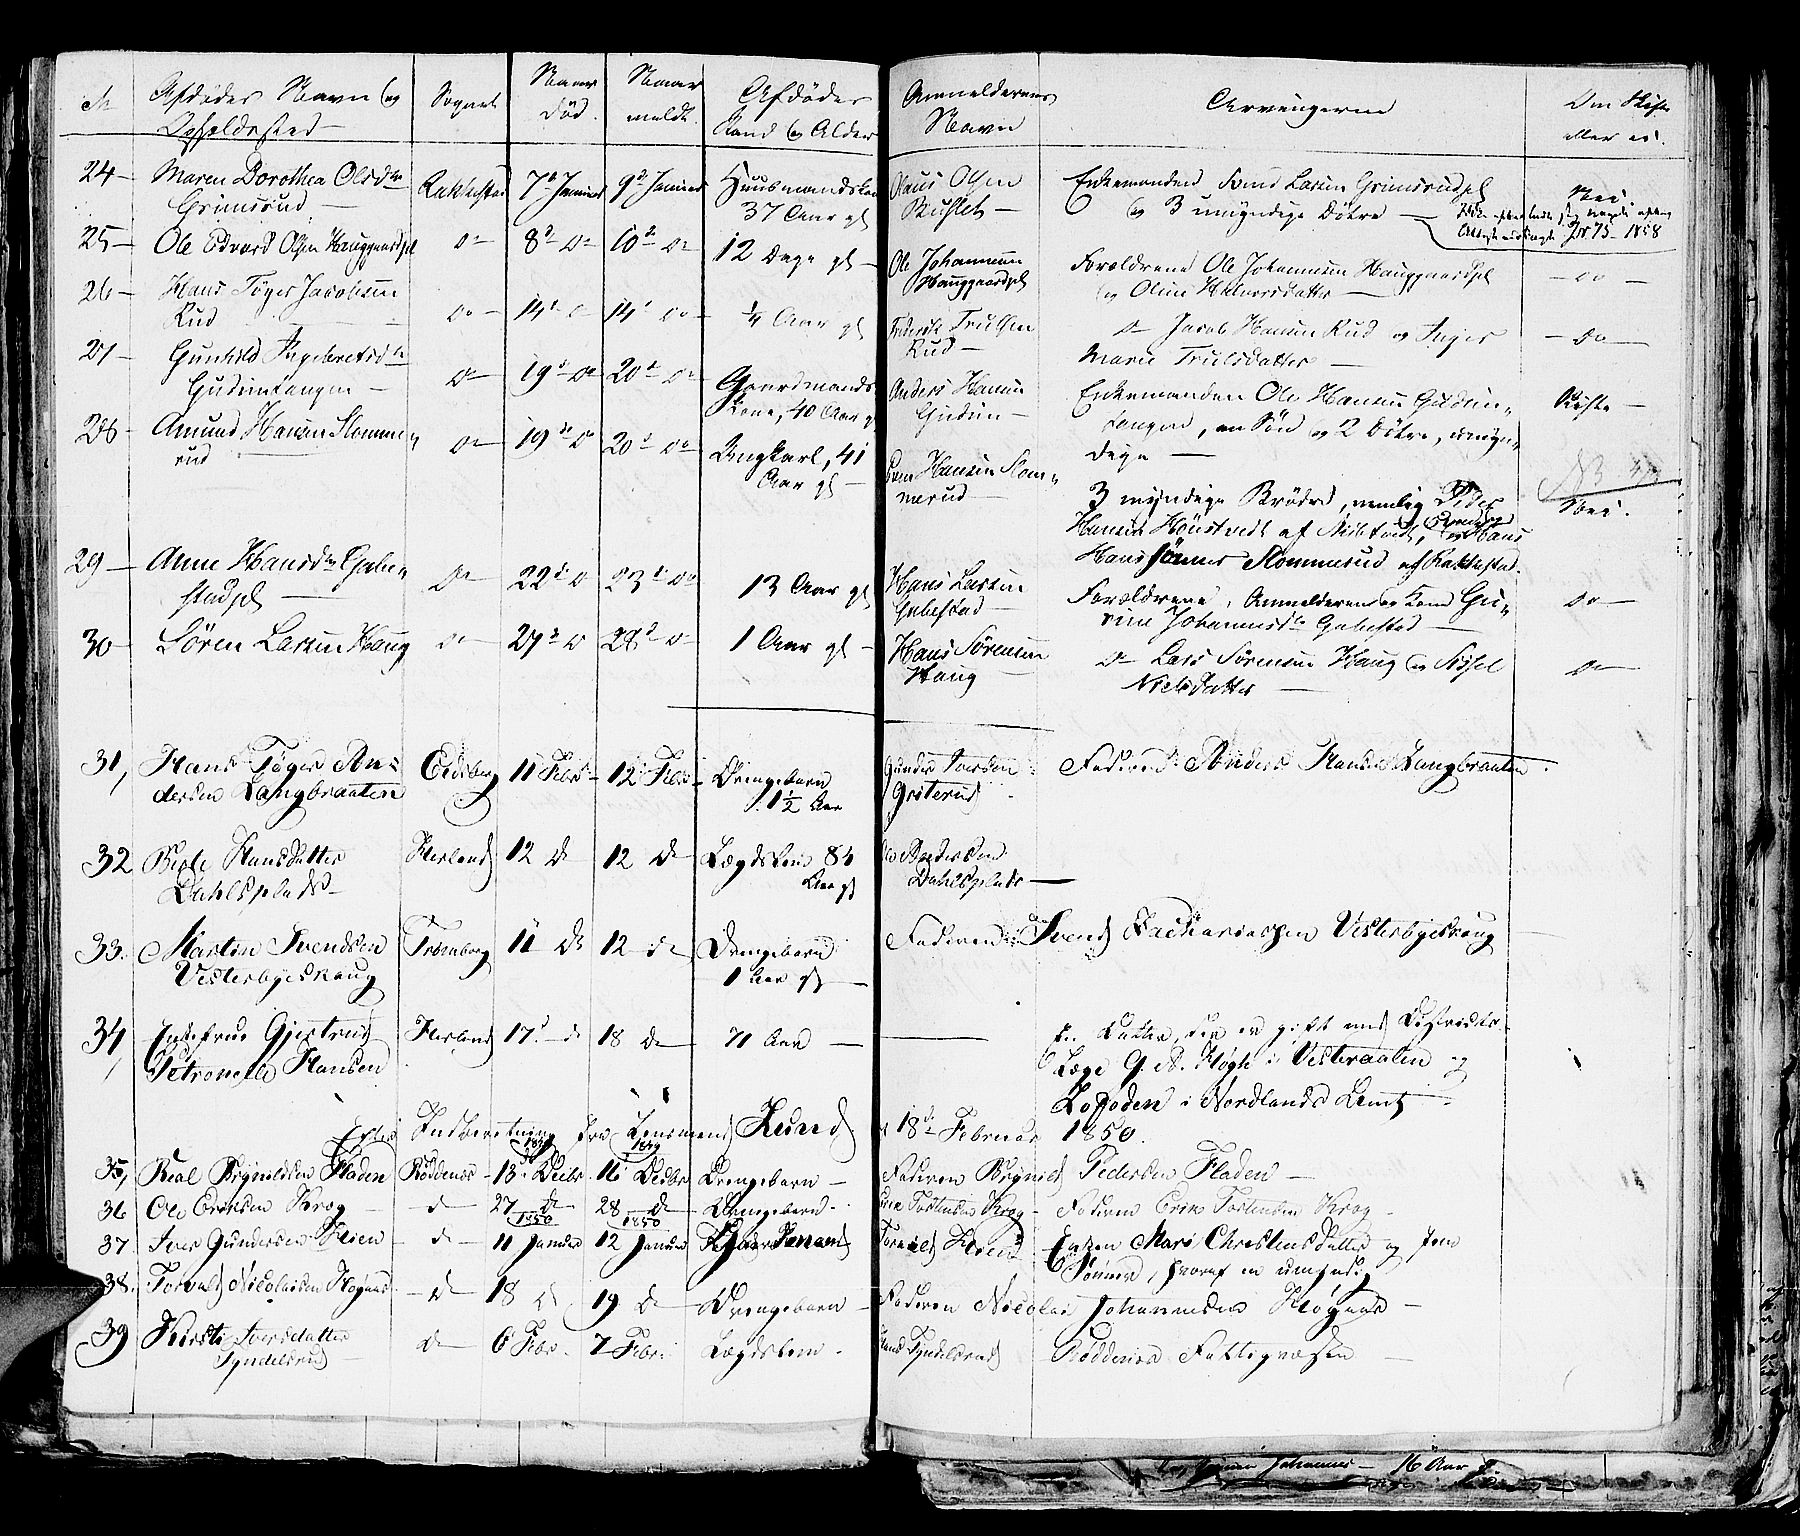 Afdødes Navn og Opholdssted — Sognet Naar død. Naar meldt. Afdødes Stand og Alder Anmelderens Navn Arvingerne Om Skifte eller ei.
24 — Maren Dorothea Olsdtr Grimsrud — Rakkestad 7d Januar 9d Januar Huusmandskone 37 Aar gl Olaus Olsen Buslet — Enkemanden Svend Larsen Grimsrudejet og 3 umyndige Døtre — Nei.
No 75 - 1858
25 — Ole Edvard Olsen Hauggaardsejet do 8d do 10d do 12 Dage gl — Ole Johannesen Hauggaardsejet Forældrene Ole Johannesen Hauggaardsejet og Oline Halvorsdatter — do —
26 — Hans Tøger Jacobsen Rud do — 14d do 14d do — ¼ Aar gl Frederik Trulsen Rud — do Jacob Hansen Rud og Inger Marie Trulsdatter — do —
27 — Gunhild Ingebretsdtr Gudimtangen — do 19d do 20d do Gaardmands Kone, 40 Aar gl Anders Hansen Gudim — Enkemanden Ole Hansen Gudim-tangen, en Søn og 2 Døtre, umyn-dige — Skifte —
28 — Amund Hansen Slomme-rud do 19d do 20d do Ungkarl, 41 Aar gl — Hansen Slom-merud — 3 myndige Brødre, nemlig Peder Hansen og Hans Hanssønner Slommerud af Rakkestad. Nei.
29 — Anne Hansdtr Gabe-stadejet — do 22d do 23d do 13 Aar gl Hans Larsen Gabestad — Forældrene, Anmelderen og Kone Gu-rine Johannesdtr Gabestad — do —
30 — Søren Larsen Haug do 27d do 28d do 1 Aar gl — Hans Sørensen Haug — do Lars Sørensen Haug og Sissel Nielsdatter — do —
31, Hans Tøger An-dersen Langbraaten Eidsberg 11 Febr 12 Febr Drengebarn 1½ Aar Gunder Iversen Grøterud Faderen Anders Hansen Langbraaten.
32 Berte Hansdatter Dahlsplads Herland 12 do 12 do Lægdslem 84 Aar gl Andersen Dahlsplads —
33. Martin Svendsen Vesterbyeskaug Trømborg 11 do 12 do Drengebarn 1 Aar gl — Faderen Svend Zachariassen Vesterbyeskaug
34, Enkefrue Gjertrud Petronelle Hansen Herland 17d do 18 do 71 Aar — En Datter, der er gift med Districts-Læge G. A. Høgh i Vesteraalen og Lofoden i Nordlands Amt.
Efter Indberetning fra Lensmand Lund af 18de Februar 1850.
35, Beal Brynildsen Fladen Røddenes 13 Decbr 1849 16 Decbr 1849 Drengebarn — Faderen Brynild Pedersen Fladen —
36 Ole Eriksen Krog — d 27 do 28 do Drengebarn — Erik Torstensen Krog — Faderen Erik Torstensen Krog —
37 Iver Gundersen Kien — d — 11 Januar 1850 12 Januar 1850 Enken Mari Christensdatter og fem Sønner, hvoraf en umyndig
38. Torvald Nicolaisen — d 18 d 19 d Drengebarn — Faderen Nicolai Johannesen —
39 Kirsti Iversdatter Tyndelsrud — d — 6 Febr. 7 Febr. Lægdslem — Tyndelsrud Røddenes Fattigvæsen —
Johannes — 16 Aar